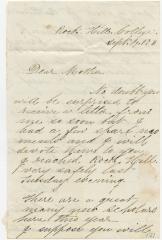 Rock Hill College
Sept. 4, 18
Dear Mother
No doubt you
will be surprised to
receive a letter from
me so soon but I
had a few spare
moments and I will
devote them to you
I reached Rock Hill
very safely last
Tuesday evening
There are a great
many new scholars
here this year
I suppose you will